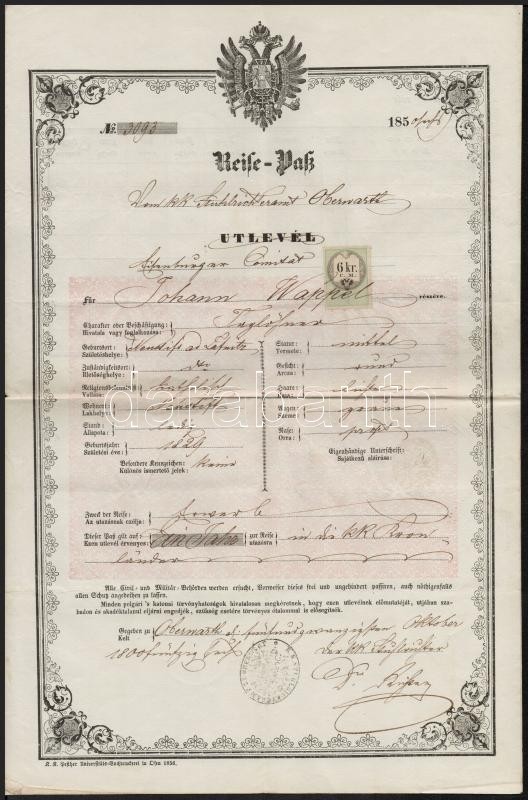 No 3093
185
Reise-Paß
Vom KK Stuhlrichteramt Oberwarth
UTLEVÉL
Eisenburger Comitat
6 kr.
C. M.
Für Johann Wappel részére.
Charakter oder Beschäftigung: Taglöhner
Hivatala vagy foglalkozása:
Geburtsort:
Születéshelye:
Zuständigkeitsort:
Illetőséghelye:
Religionsbekenntniß:
Vallása:
Wohnort:
Lakhelye:
Stand: ledig
Állapota:
Geburtsjahr: 1829
Születési éve:
Besondere Kennzeichen: keine
Különös ismertető jelek:
Statur: mittel
Termete:
Gesicht: rund
Arcza:
Haare:
Haja:
Augen: grau
Szeme:
Nase:
Orra:
Eigenhändige Unterschrift:
Sajátkezű aláírása:
darabanth
Zweck der Reise: Erwerb
Az utazásnak czélja:
Dieser Paß gilt auf: Ein Jahr zur Reise in die KK Kron-
Ezen utlevél érvényes: utazásra
länder
Alle Civil- und Militär-Behörden werden ersucht, Vorweiser dieses frei und ungehindert passiren, auch nöthigenfalls
allen Schutz angedeihen zu lassen.
Minden polgári 's katonai törvényhatóságok hivatalosan megkéretnek, hogy ezen utlevélnek előmutatóját, utjában sza-
badon és akadálytalanul eljárni engedjék, szükség esetére törvényes oltalommal is elősegítsék.
Gegeben zu Oberwarth Oktober
Kelt
der KK Stuhlrichter
Dr.
K. K. Pesther Universitäts-Buchdruckerei in Ofen 1856.